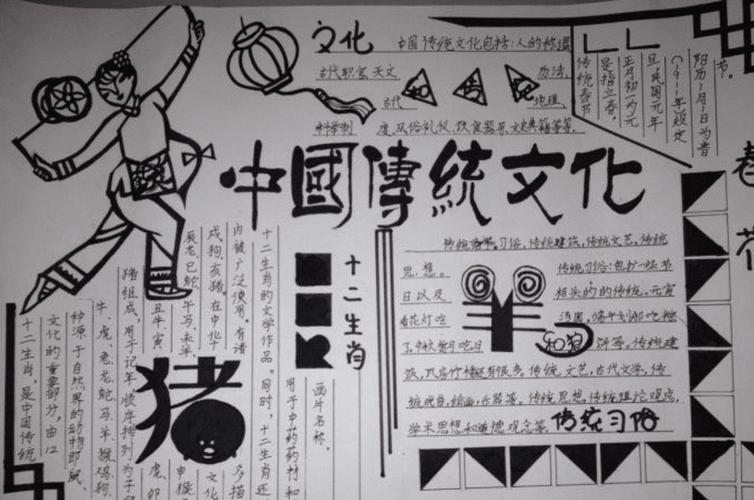 文化
中国传统文化包括:人的称谓
古代职官、天文 历法,
古代 地理,
科学制度,风俗礼仪,饮食器用,文史典籍等等,
节。
阳历1月1日为春
(1911年)规定
且,民国元年
正月初一为元
是指立春,
传统春节
中國傳統文化
十二生肖
猪
十二生肖,是中国传统
文化的重要部分,由12
种源于自然界的动物即鼠、
牛、虎、兔龙蛇马羊、猴鸡狗、
猪组成,用于记年,顺序排列为子
丑牛、寅
辰龙、巳蛇、午马、未羊
戌狗、亥猪、在中华
内被广泛使用,有诸
十二生肖的文学作品。同时,十二生肖还
用于中药药材和
画片名称。
传统习俗,传统建筑,传统文艺,传统
思想。 传统习俗:包括
相关的的传统。元宵
看花灯吃汤圆,端午划船吃粽
和狗
子,中秋赏月吃月饼等。传统建
筑,
传统文艺,古代文学,传
统戏曲,绘画,乐器等。传统思想,传统理论观点,
学术思想和道德观念等。
传统习俗
春
花